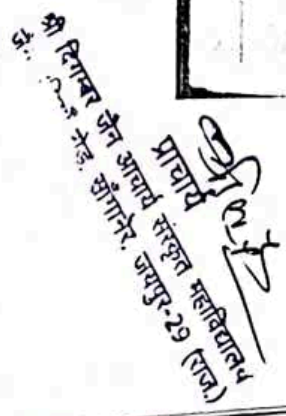 प्राचार्य
श्री दिगम्बर जैन आचार्य संस्कृत महाविद्यालय
रोड, साँगानेर, जयपुर-29 (राज.)